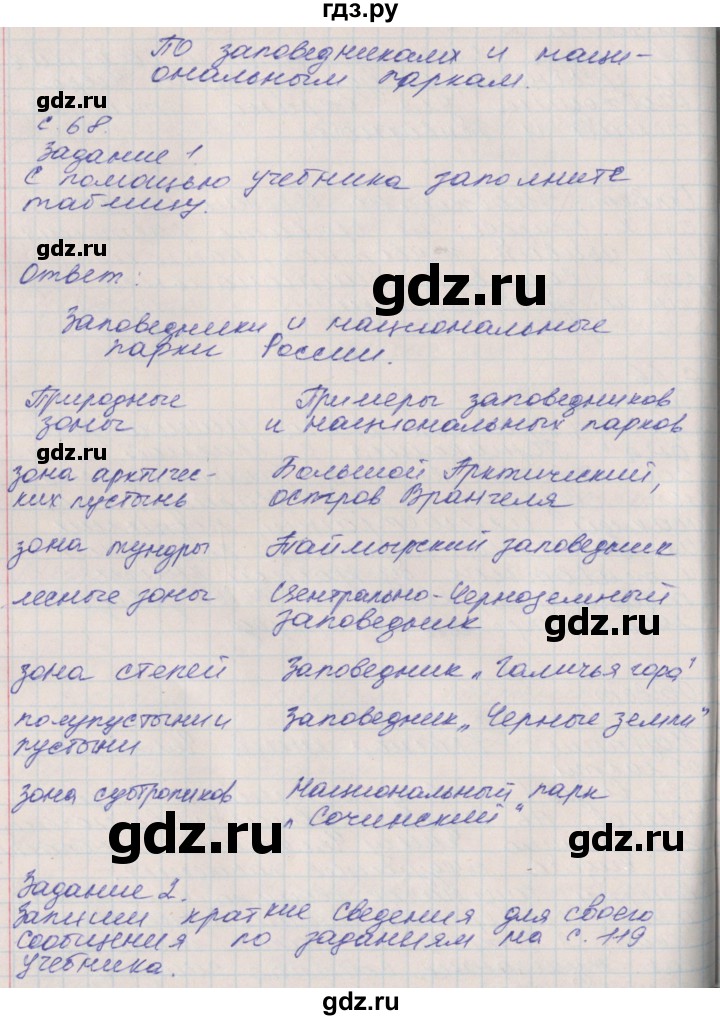 гдз.ру
По заповедникам и наци-
ональным паркам.
gdz.ru
с. 68.
Задание 1.
С помощью учебника заполните
таблицу.
gdz.ru
Ответ:
gdz.ru
Заповедники и национальные
парки России.
Природные Примеры заповедников
зоны и национальных парков
gdz.ru
зона арктичес- Большой Арктический,
ких пустынь остров Врангеля
зона тундры Таймырский заповедник
лесные зоны Центрально-Черноземный
заповедник
gdz.ru
зона степей Заповедник „Галичья гора"
полупустыни и Заповедник „Черные земли"
пустыни
зона субтропиков Национальный парк
„Сочинский"
gdz.ru
gdz.ru
Задание 2.
Запиши краткие сведения для своего
сообщения по заданиям на с. 119
учебника.
gdz.ru